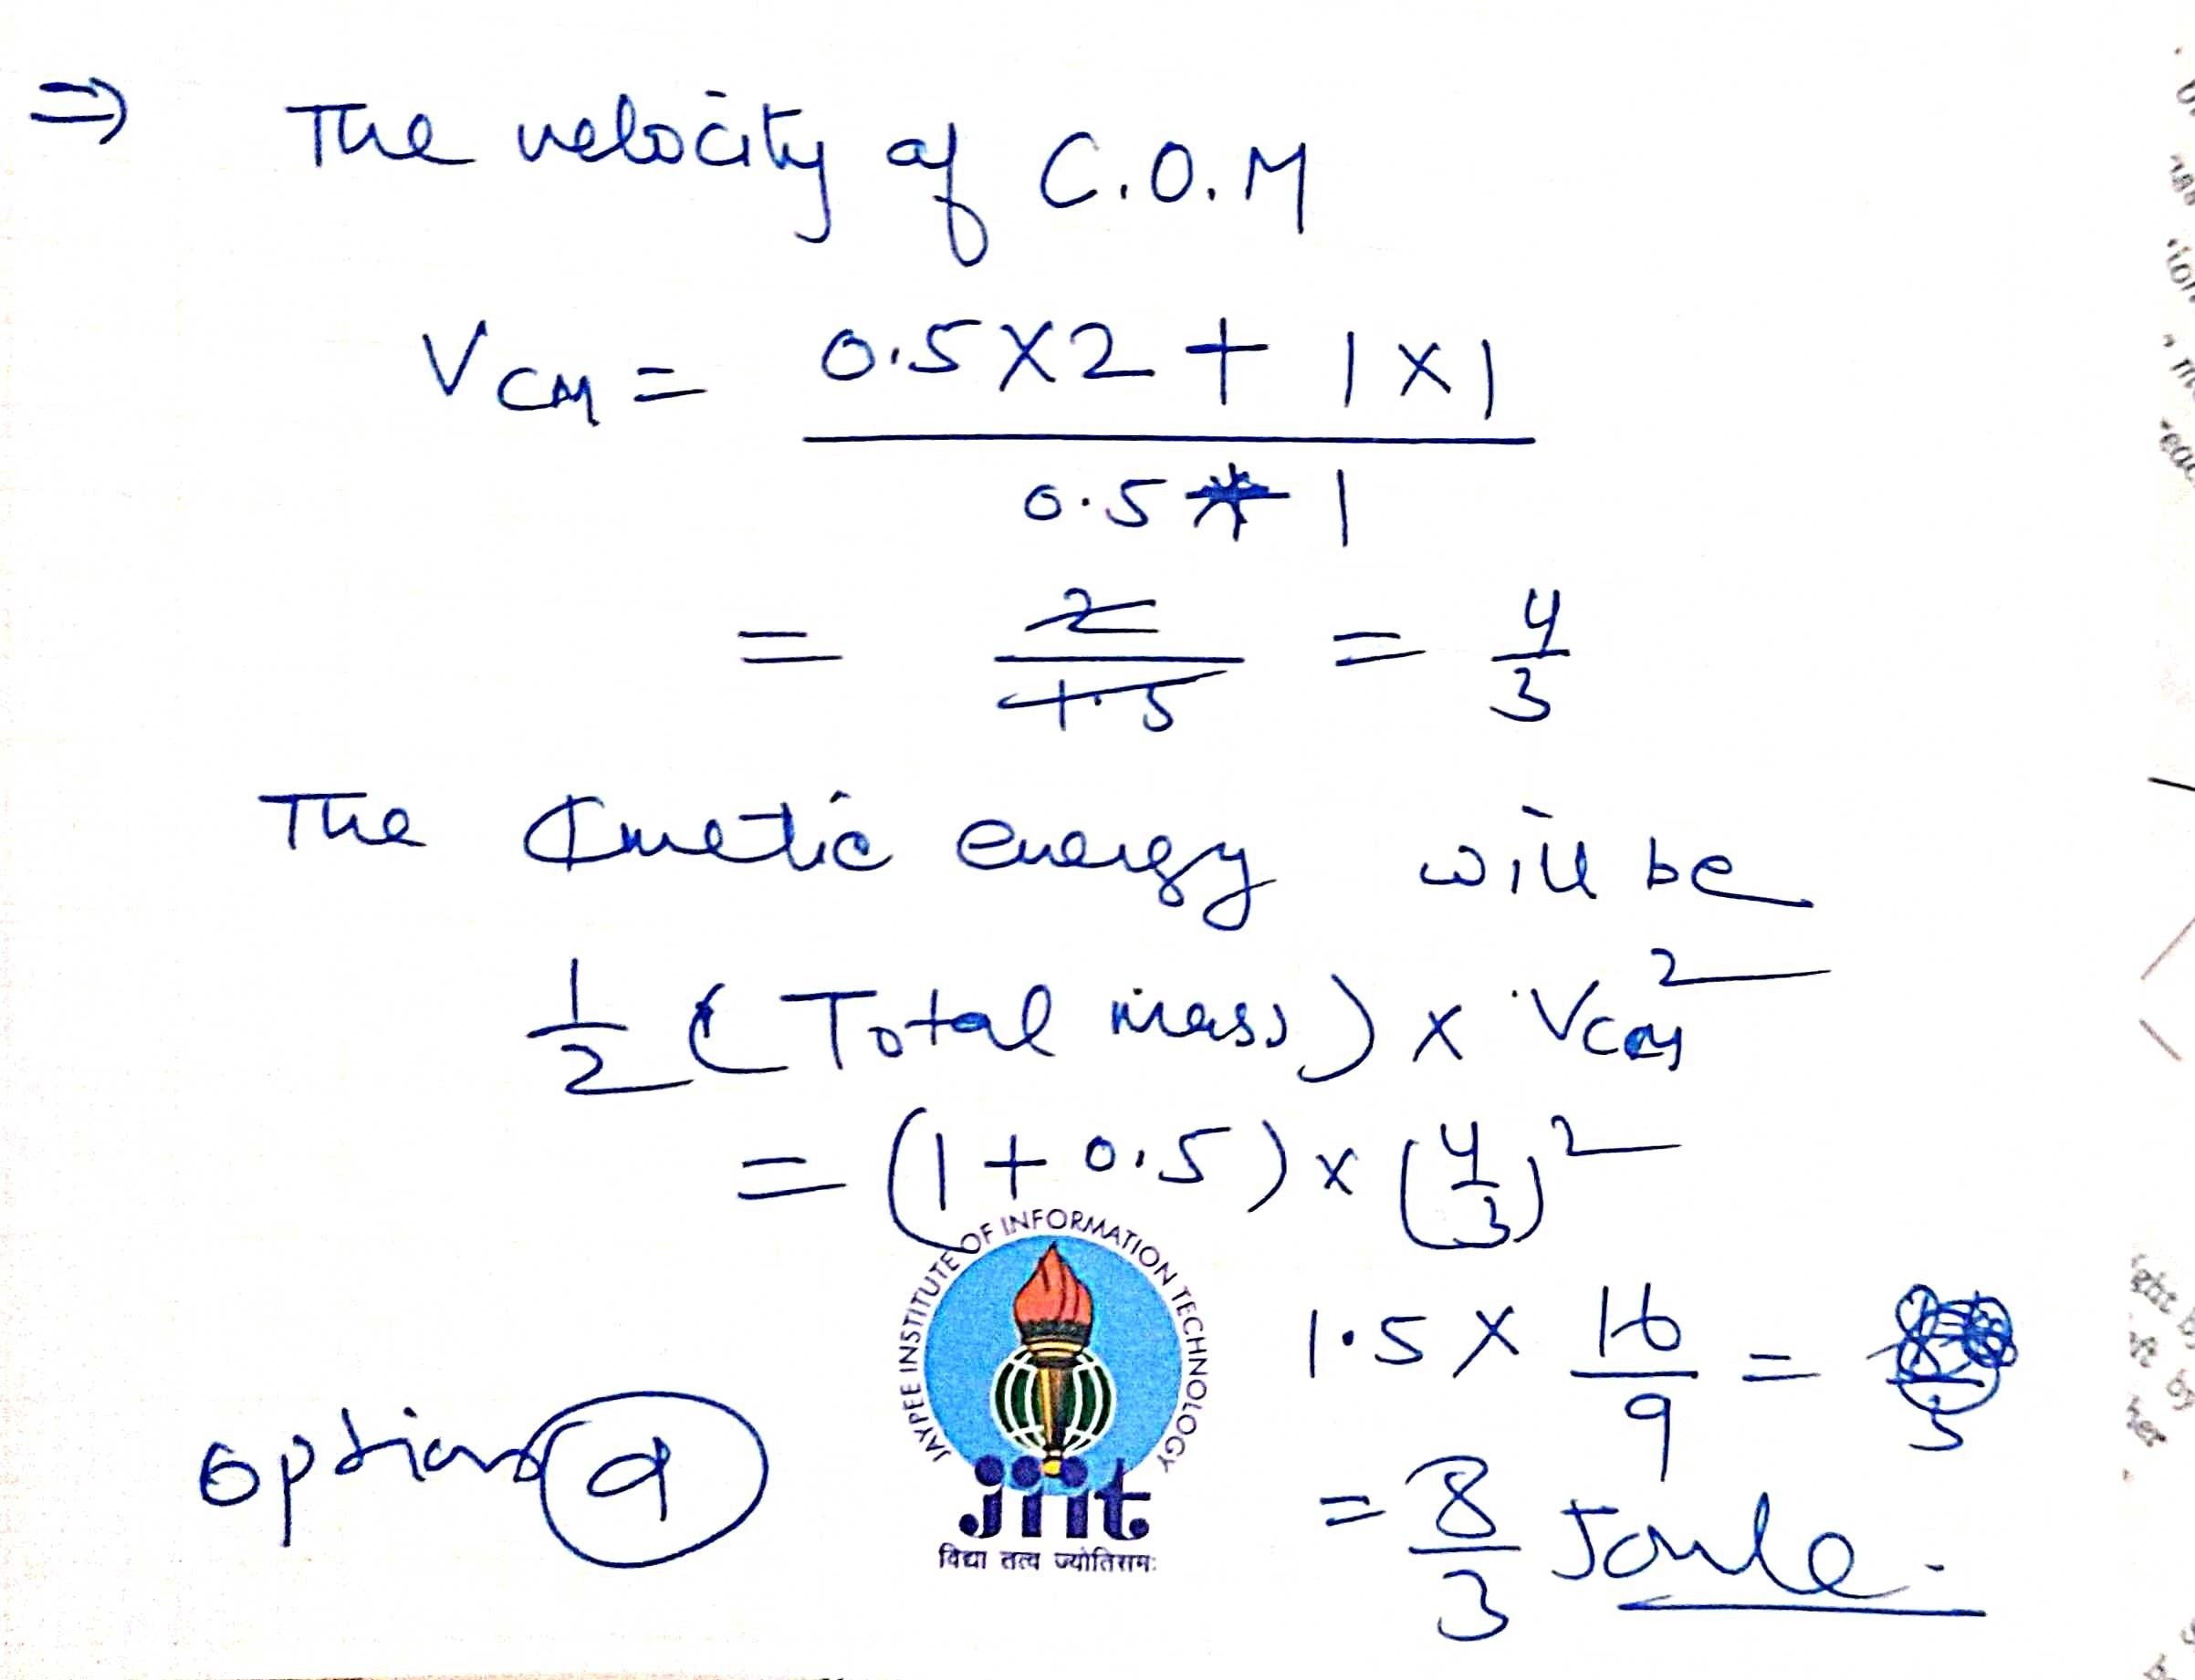 ⇒ The velocity of C.O.M
V CM = 0.5 X 2 + 1 X 1
0.5 + 1
= 2 / 1.5 = 4/3
The Kinetic energy will be
1/2 (Total mass) x VCM²
= (1 + 0.5) x (4/3)²
1.5 X 16/9 =
= 8/3 Joule.
option a
JAYPEE INSTITUTE OF INFORMATION TECHNOLOGY
jiit
विद्या तत्व ज्योतिसमः